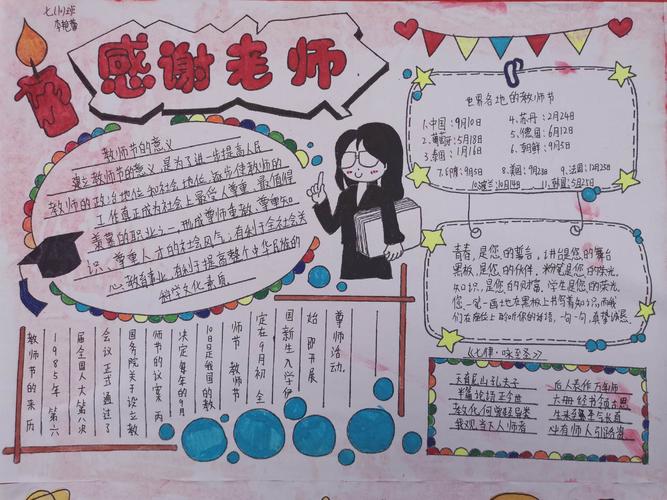 七(10)班
李艳蕾
感谢老师
教师节的意义
建立教师节的意义,是为了进步提高人民
教师的政治地位和社会地位,逐步使教师的
工作真正成为社会上最受人尊重、最值得
羡慕的职业之一,形成尊师重教、尊重知
识、尊重人才的社会风气,有利于全社会关
心教育事业,有利于提高整个中华民族的
科学文化素质
世界各地的教师节
1.中国:9月10日
2.葡萄牙:5月18日
3.泰国:1月16日
4.苏丹:2月24日
5.德国:6月12日
6.朝鲜:9月5日
7.印度:9月5日
8.美国:9月28日
9.法国:12月25日
10.波兰:10月14日
11.韩国:5月25日
青春,是您的舞台,讲台是您的舞台
黑板,是您的伙伴,粉笔是您的荣光
知识,是您的财富,学生是您的荣光。
您一笔一画地在黑板上书写着知识,而我
们在座位上聆听你的话语,一句一句,真挚诚恳
《七律·咏至圣》
天育尼山孔夫子
半篇论语正今世
教化何曾轻异类
我观当下人师者
后人尊作万年师
六册经书领古思
生来至集平与长直
必有师人引路资
教师节的来历
1985年第六
届全国人大第八次
会议正式通过了
国务院关于设立教
师节的议案,丙
决定每年的9月
10日是我国的教
师节,教师节
定在9月初,全
国新生入学伊
始,即开展
尊师活动.